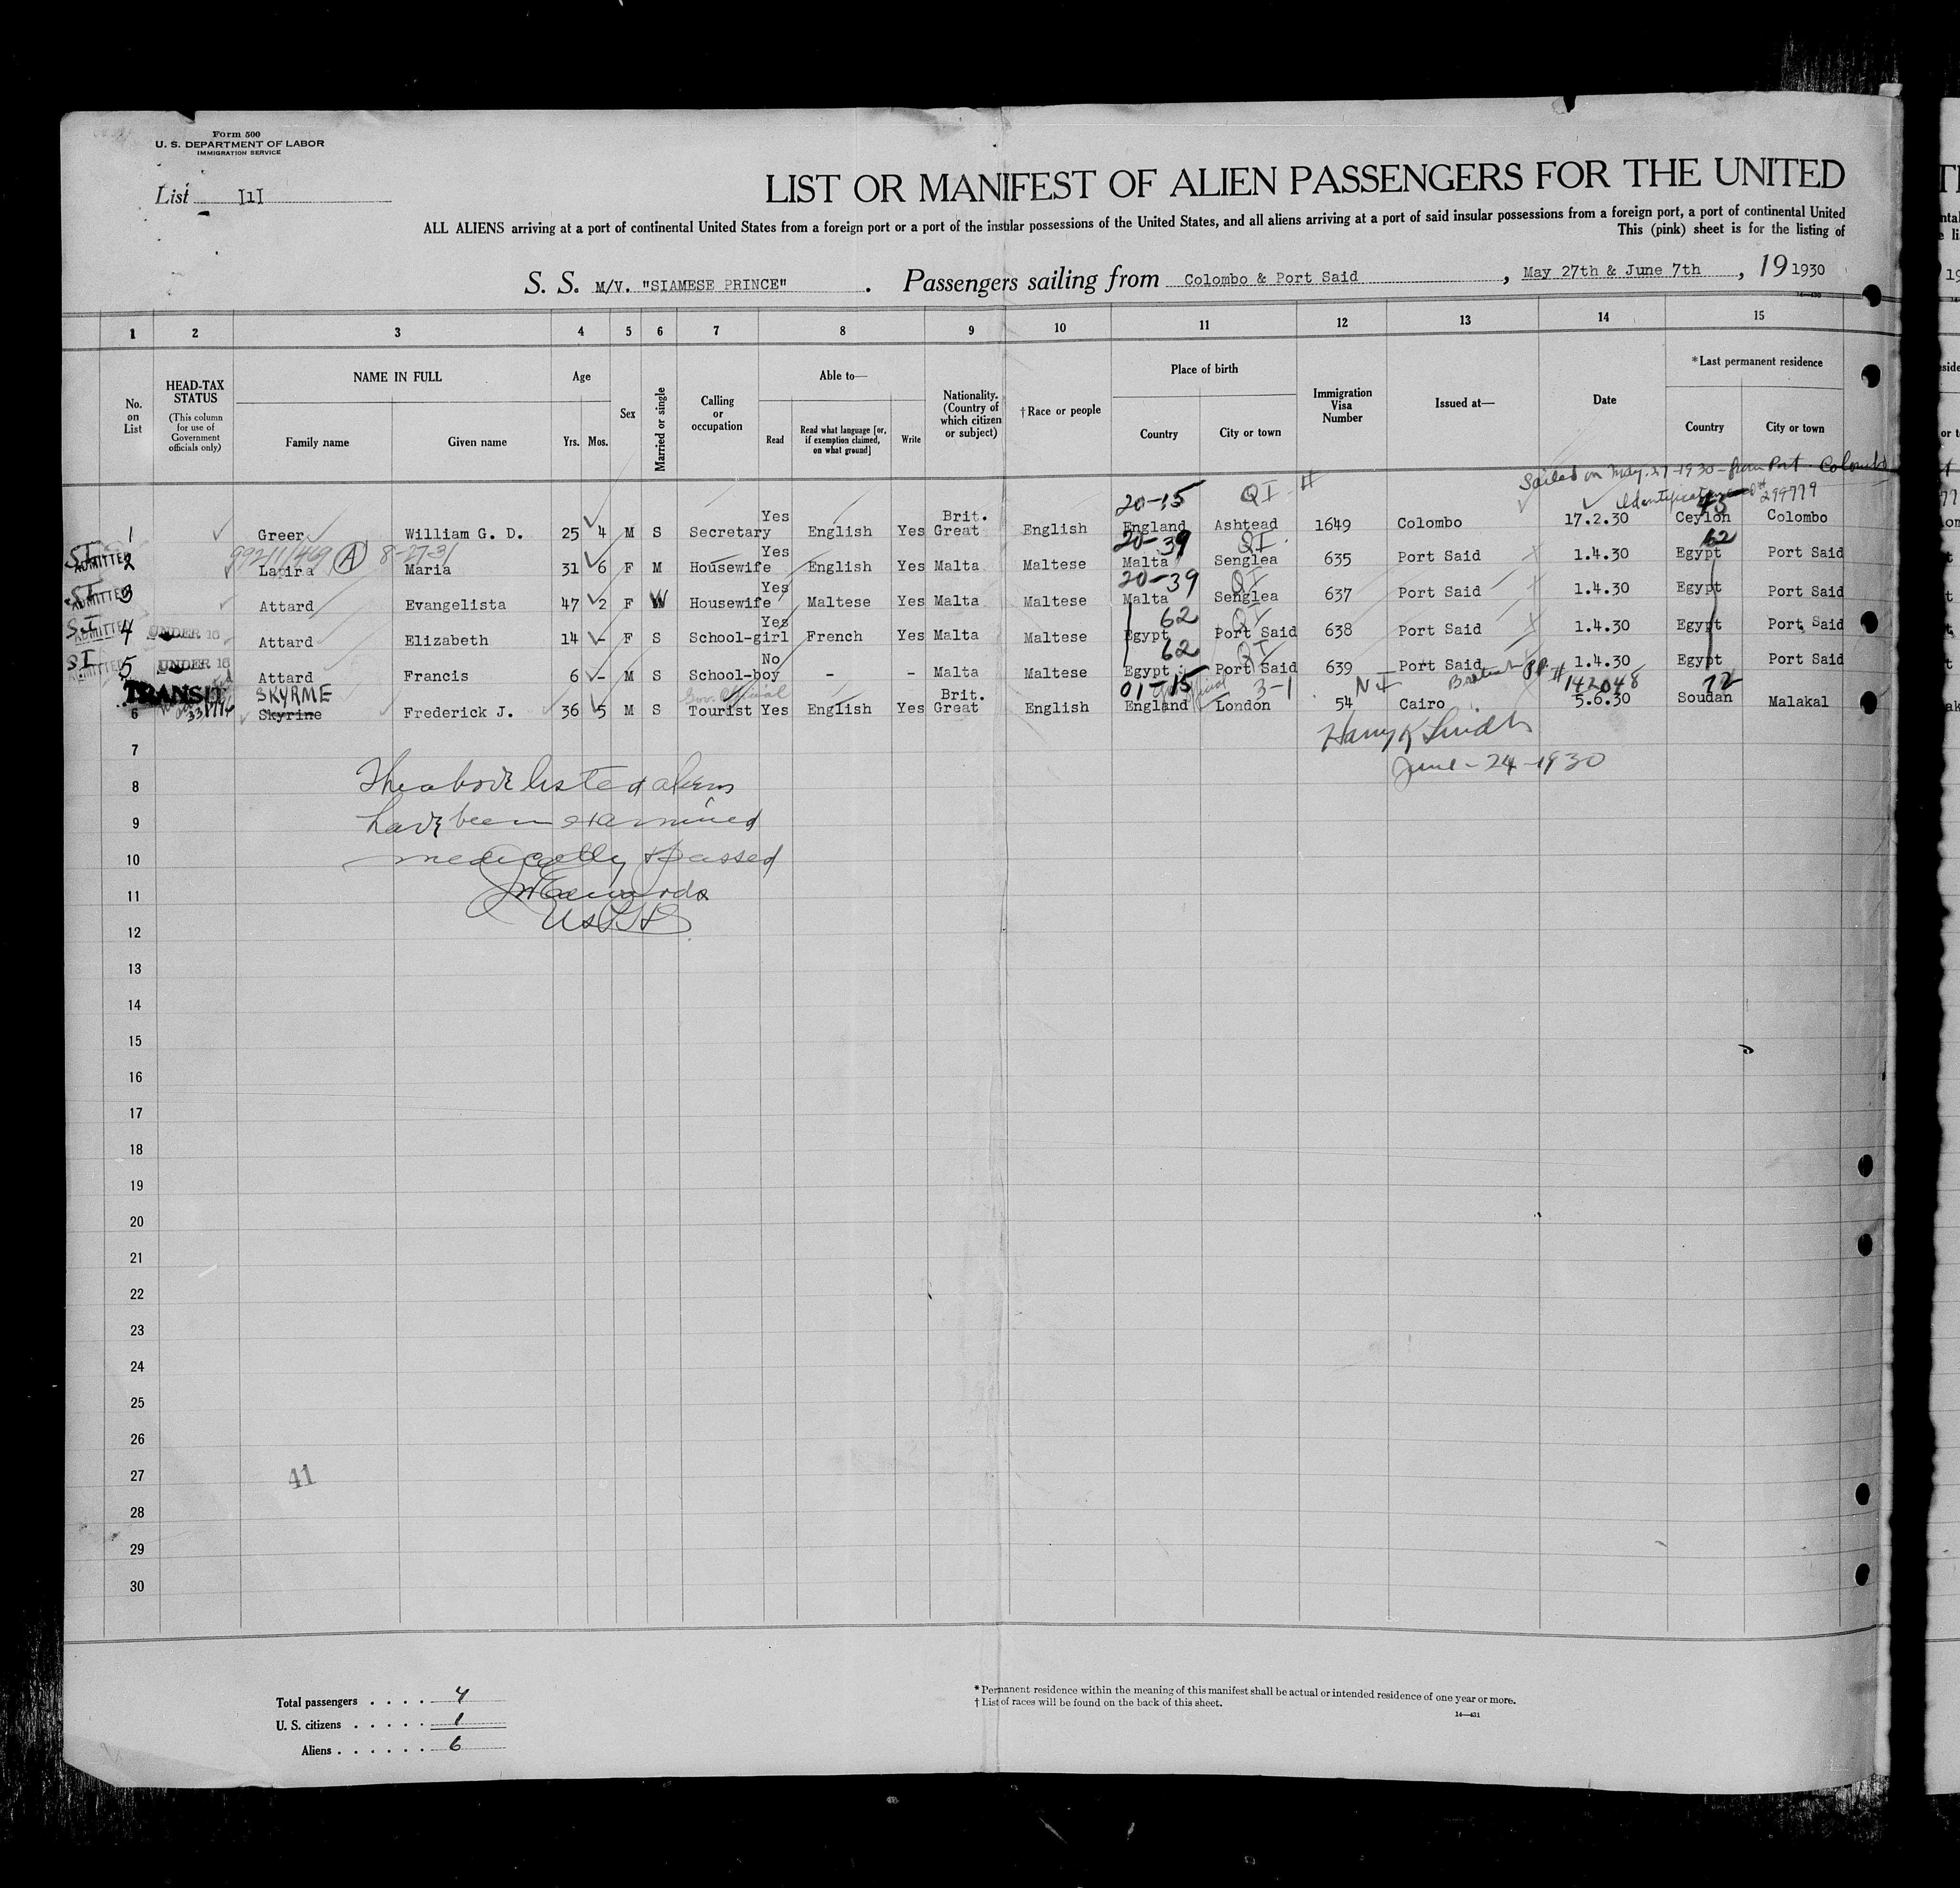 Form 500
U. S. DEPARTMENT OF LABOR
IMMIGRATION SERVICE
List [1]
LIST OR MANIFEST OF ALIEN PASSENGERS FOR THE UNITED
ALL ALIENS arriving at a port of continental United States from a foreign port or a port of the insular possessions of the United States, and all aliens arriving at a port of said insular possessions from a foreign port, a port of continental United
This (pink) sheet is for the listing of
S. S. M/V. "SIAMESE PRINCE" . Passengers sailing from Colombo & Port Said , May 27th & June 7th , 19 1930
14—430
1 2 3 4 5 6 7 8 9 10 11 12 13 14 15
No. on List
HEAD-TAX STATUS
(This column for use of Government officials only)
NAME IN FULL
Family name Given name
Age
Yrs. Mos.
Sex
Married or single
Calling or occupation
Able to—
Read
Read what language [or, if exemption claimed, on what ground]
Write
Nationality. (Country of which citizen or subject)
†Race or people
Place of birth
Country City or town
Immigration Visa Number
Issued at—
Date
*Last permanent residence
Country City or town
Sailed on May-27-1930-from Port Colombo
Identification 299779
20-15 QI
1 Greer William G. D. 25 4 M S Secretary Yes English Yes Brit. Great English England Ashtead 1649 Colombo 17.2.30 Ceylon Colombo
SI ADMITTED 8-27-31 A 20-39 QI 62
2 Maria 31 6 F M Housewife Yes English Yes Malta Maltese Malta Senglea 635 Port Said 1.4.30 Egypt Port Said
SI ADMITTED 20-39 QI
3 Attard Evangelista 47 2 F W Housewife Yes Maltese Yes Malta Maltese Malta Senglea 637 Port Said 1.4.30 Egypt Port Said
SI ADMITTED UNDER 16 62 QI
4 Attard Elizabeth 14 - F S School-girl Yes French Yes Malta Maltese Egypt Port Said 638 Port Said 1.4.30 Egypt Port Said
SI ADMITTED UNDER 16 62 QI
5 Attard Francis 6 - M S School-boy No - - Malta Maltese Egypt Port Said 639 Port Said 1.4.30 Egypt Port Said
TRANSIT SKYRME Gov. Official 01-15 3-1 NI British PP # 142048 72
6 Skyrine Frederick J. 36 5 M S Tourist Yes English Yes Brit. Great English England London 54 Cairo 5.6.30 Soudan Malakal
7
June-24-1930
The above listed aliens
8
have been examined
9
medically & passed
10
11
USPHS
12
13
14
15
16
17
18
19
20
21
22
23
24
25
26
27
41
28
29
30
Total passengers . . . . 7
U. S. citizens . . . . . 1
Aliens . . . . . . 6
*Permanent residence within the meaning of this manifest shall be actual or intended residence of one year or more.
†List of races will be found on the back of this sheet.
14—431